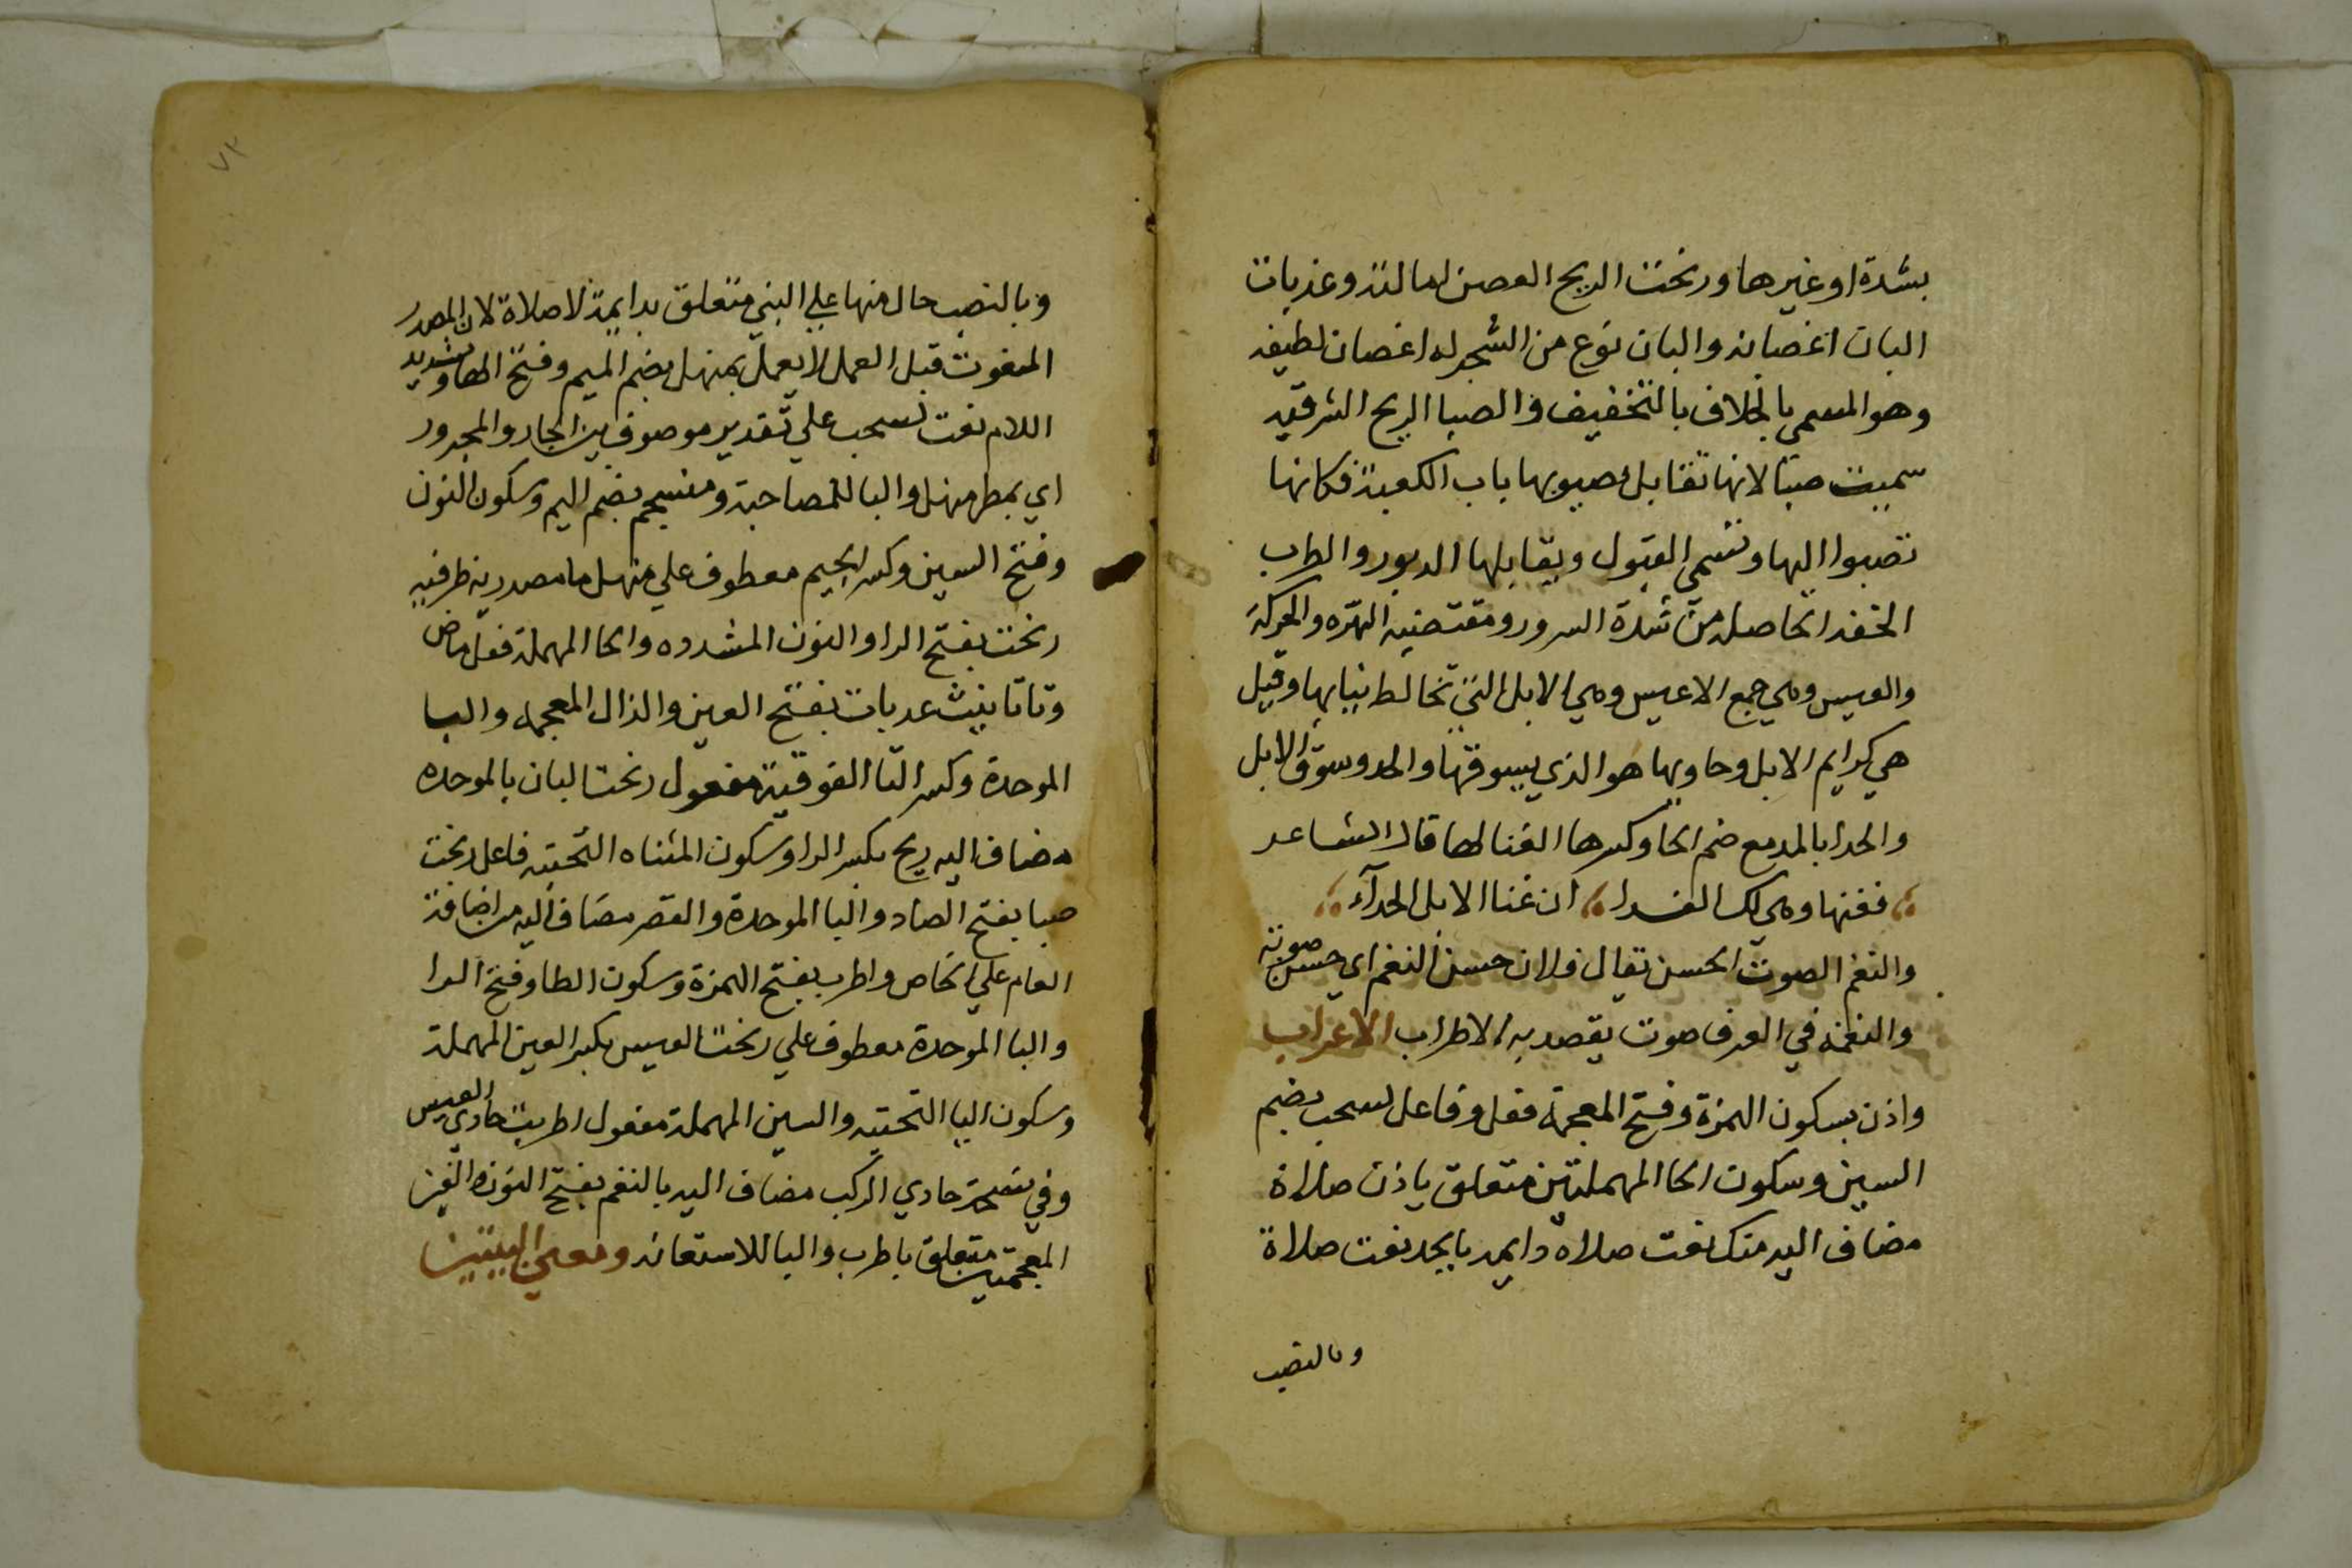 بشدة او غيرها ورنحت الريح الغصن امالته وعذبات
البان اغصانه والبان نوع من الشجر له اغصان لطيفه
وهو المسمي بالخلاف بالتخفيف والصبا الريح الشرقيه
سميت صبا لانها تقابل بصبوبها باب الكعبة فكانها
تصبوا اليها وتسمي القبول ويقابلها الدبور والطرب
الخفه الحاصله من شدة السرور ومقتضيه الهزه والحركة
والعيس وهي جمع الاعيس وهي الابل التي تخالط بياضها وقيل
هي كرايم الابل وحاديها هو الذي يسوقها والحدو سوق الابل
والحدا بالمد مع ضم الحا وكسرها الغنا لها قال الشاعر
فغنها وهي لك الفدا ان غنا الابل الحدآء
والنغم الصوت الحسن تقال فلان حسن النغم اي حسن صوته
والنغمه في العرف صوت يقصد به الاطراب الاعراب
واذن بسكون الهمزة وفتح المعجمة فعل وفاعل لسحب بضم
السين وسكون الحا المهملتين متعلق ياذن صلاة
مضاف اليه منك نعت صلاه دايمه بالجر نعت صلاة
وبالنصب
٧٣
وبالنصب حال منها علي النبي متعلق بدايمة لا صلاة لان المصدر
المنعوت قبل العمل لا يعمل بمنهل بضم الميم وفتح الها وتشديد
اللام نعت لسحب علي تقدير موصوف بين الجار والمجرور
اي بمطر منهل والبا للمصاحبة ومنسجم بضم الميم وسكون النون
وفتح السين وكسر الجيم معطوف علي منهل ما مصدرية ظرفيه
رنحت بفتح الرا والنون المشدده والحا المهملة فعل ماض
وتا تانيث عذبات بفتح العين والذال المعجمه والبا
الموحدة وكسر التا الفوقية مفعول رنحت البان بالموحده
مضاف اليه ريح بكسر الرا وسكون المثناه التحتيه فاعل رنحت
صبا بفتح الصاد والبا الموحدة والقصر مضاف اليه من اضافة
العام علي الخاص واطرب بفتح الهمزة وسكون الطا وفتح الرا
والبا الموحدة معطوف علي رنحت العيس بكسر العين المهملة
وسكون اليا التحتيه والسين المهملة مفعول اطربت حادي العيس
وفي نسخة حادي الركب مضاف اليه بالنغم بفتح النون والغين
المعجمتين متعلق باطرب والبا للاستعانه ومعني البيتين